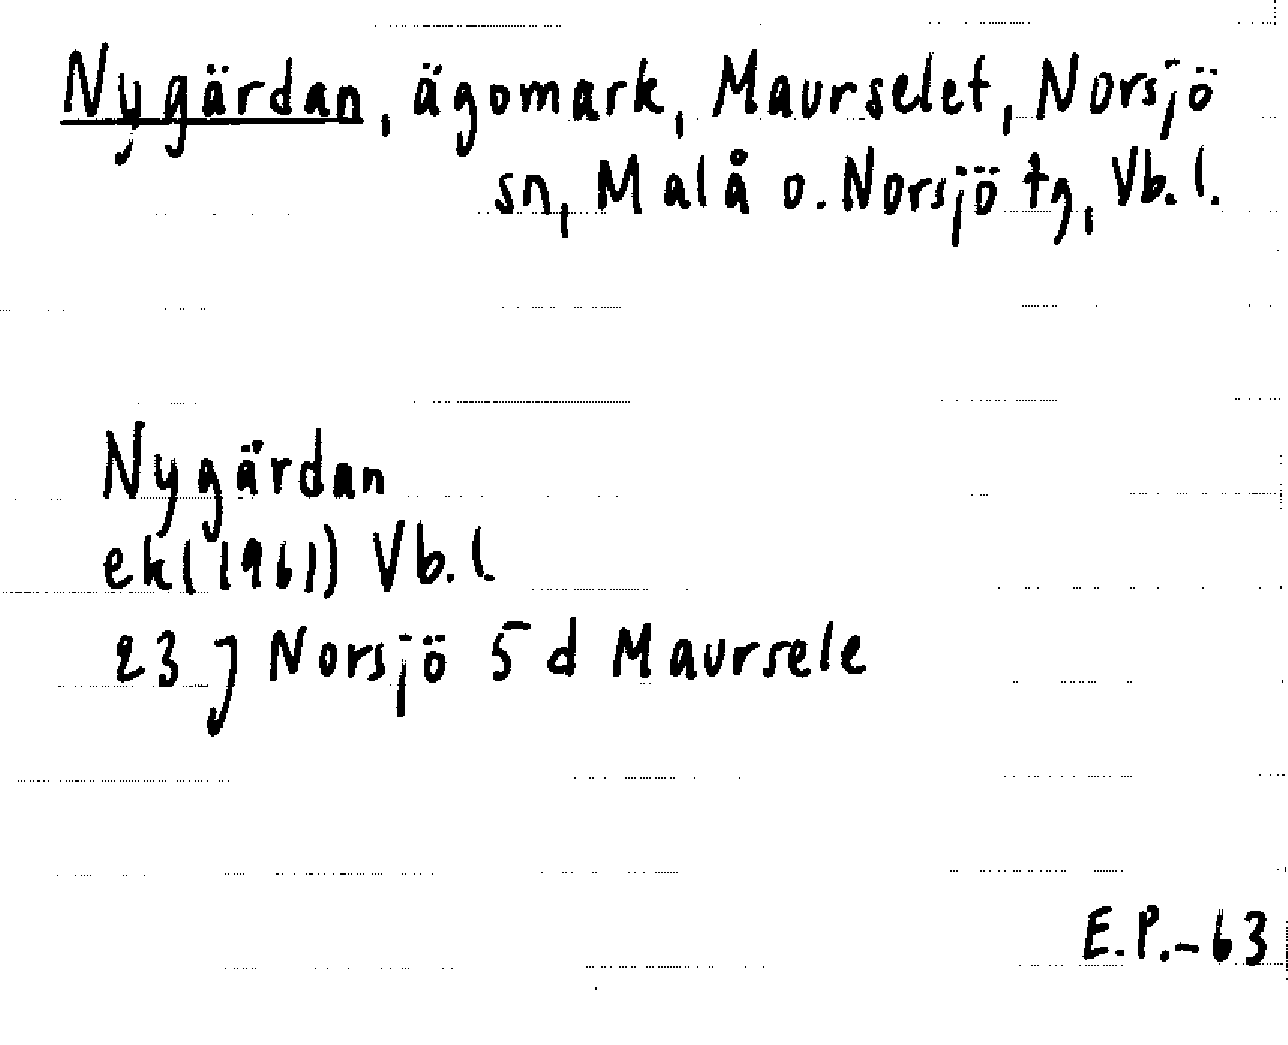 Nygärdan, ägomark, Maurselet, Norsjö
sn, Malå o. Norsjö tg, Vb. l.
Nygärdan
ek (1961) Vb. l.
23 J Norsjö 5 d Maursele
E.P.-63